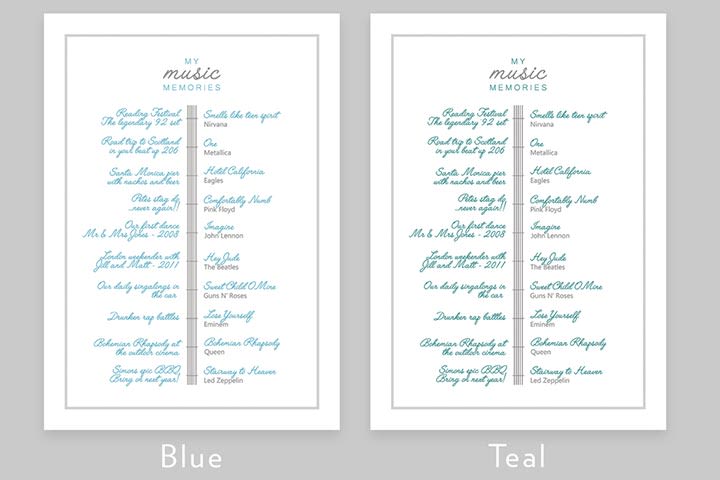 MY
music
MEMORIES
Reading Festival
The legendary 92 set
Smells like teen spirit
Nirvana
Road trip to Scotland
in your beat up 206
One
Metallica
Santa Monica pier
with nachos and beer
Hotel California
Eagles
Petes stag do
...never again!!
Comfortably Numb
Pink Floyd
Our first dance
Mr & Mrs Jones - 2008
Imagine
John Lennon
London weekender with
Jill and Matt - 2011
Hey Jude
The Beatles
Our daily singalongs in
the car
Sweet Child O Mine
Guns N' Roses
Drunken rap battles
Lose Yourself
Eminem
Bohemian Rhapsody at
the outdoor cinema
Bohemian Rhapsody
Queen
Simons epic BBQ
Bring on next year!
Stairway to Heaven
Led Zeppelin
Blue
MY
music
MEMORIES
Reading Festival
The legendary 92 set
Smells like teen spirit
Nirvana
Road trip to Scotland
in your beat up 206
One
Metallica
Santa Monica pier
with nachos and beer
Hotel California
Eagles
Petes stag do
...never again!!
Comfortably Numb
Pink Floyd
Our first dance
Mr & Mrs Jones - 2008
Imagine
John Lennon
London weekender with
Jill and Matt - 2011
Hey Jude
The Beatles
Our daily singalongs in
the car
Sweet Child O Mine
Guns N' Roses
Drunken rap battles
Lose Yourself
Eminem
Bohemian Rhapsody at
the outdoor cinema
Bohemian Rhapsody
Queen
Simons epic BBQ
Bring on next year!
Stairway to Heaven
Led Zeppelin
Teal